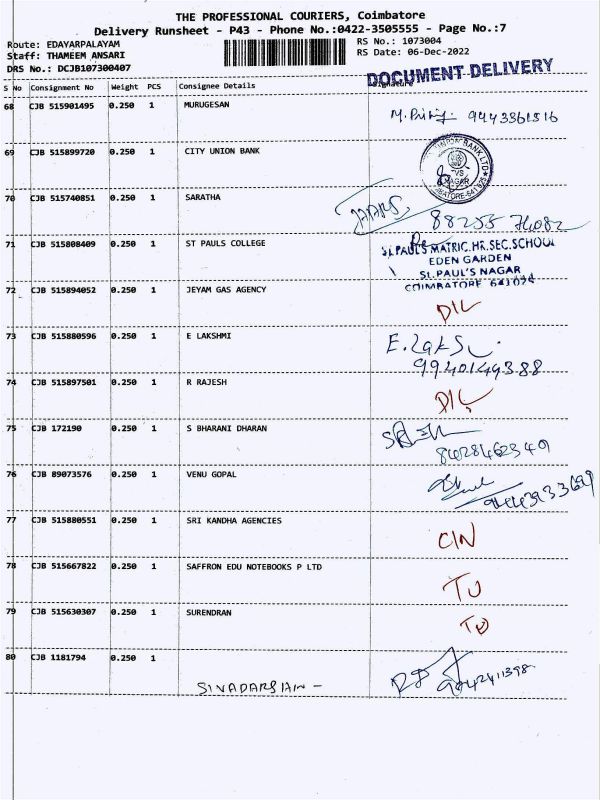 THE PROFESSIONAL COURIERS, Coimbatore
Delivery Runsheet - P43 - Phone No.:0422-3505555 - Page No.:7
Route: EDAYARPALAYAM RS No.: 1073004
Staff: THAMEEM ANSARI RS Date: 06-Dec-2022
DRS No.: DCJB107300407
DOCUMENT DELIVERY
S No Consignment No Weight PCS Consignee Details Signature
68 CJB 515901495 0.250 1 MURUGESAN
9443361516
69 CJB 515899720 0.250 1 CITY UNION BANK
UNION BANK LTD
NAGAR
70 CJB 515740851 0.250 1 SARATHA
88255 74082
71 CJB 515808409 0.250 1 ST PAULS COLLEGE
ST.PAUL'S MATRIC.HR.SEC.SCHOOL
EDEN GARDEN
ST.PAUL'S NAGAR
COIMBATORE 641024
72 CJB 515894052 0.250 1 JEYAM GAS AGENCY
D/L
73 CJB 515880596 0.250 1 E LAKSHMI
9940149388
74 CJB 515897501 0.250 1 R RAJESH
D/L
75 CJB 172190 0.250 1 S BHARANI DHARAN
8428462349
76 CJB 89073576 0.250 1 VENU GOPAL
77 CJB 515880551 0.250 1 SRI KANDHA AGENCIES
C/N
78 CJB 515667822 0.250 1 SAFFRON EDU NOTEBOOKS P LTD
79 CJB 515630307 0.250 1 SURENDRAN
80 CJB 1181794 0.250 1
9842411398